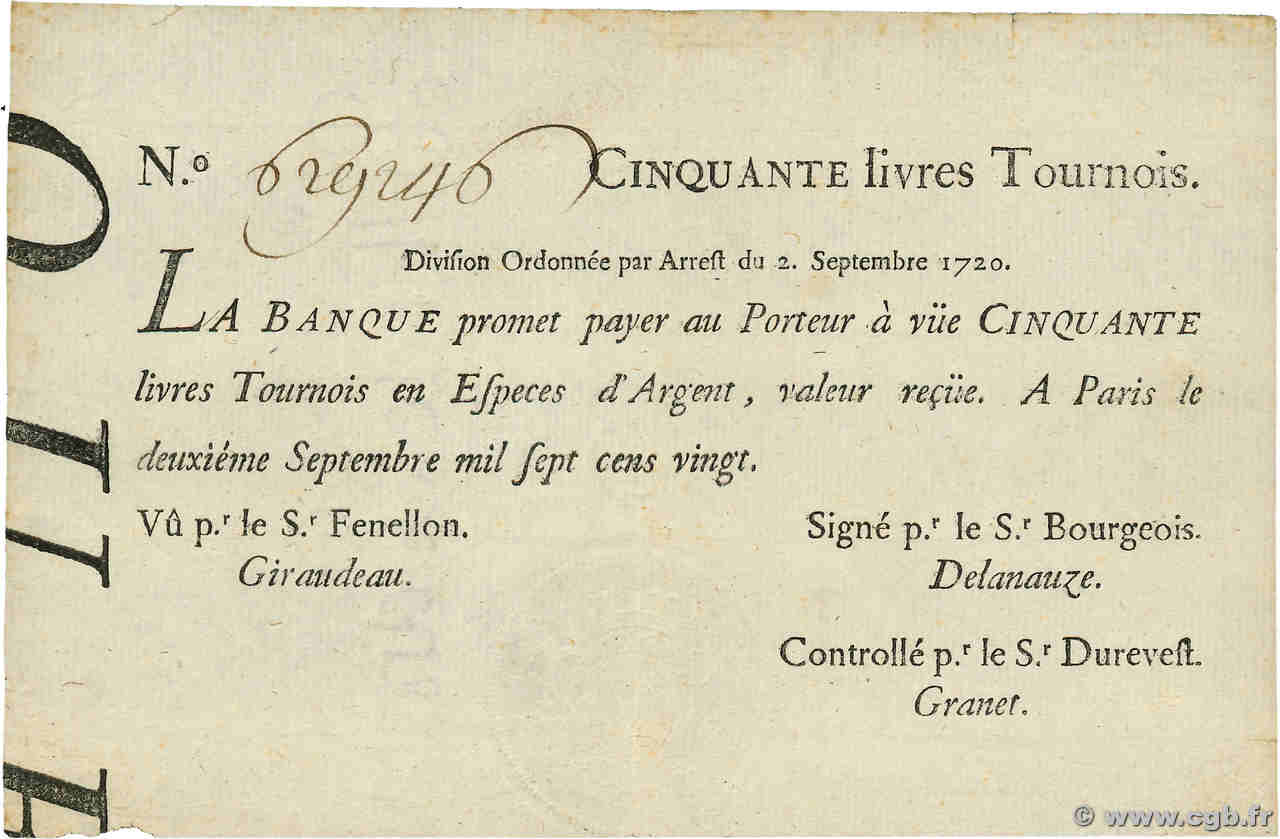 N.º 629246 CINQUANTE livres Tournois.
Diviſion Ordonnée par Arreſt du 2. Septembre 1720.
LA BANQUE promet payer au Porteur à vüe CINQUANTE
livres Tournois en Eſpeces d'Argent, valeur reçüe. A Paris le
deuxiéme Septembre mil ſept cens vingt.
Vû p.r le S.r Fenellon.
Giraudeau.
Signé p.r le S.r Bourgeois.
Delanauze.
Controllé p.r le S.r Dureveſt.
Granet.
© www.cgb.fr